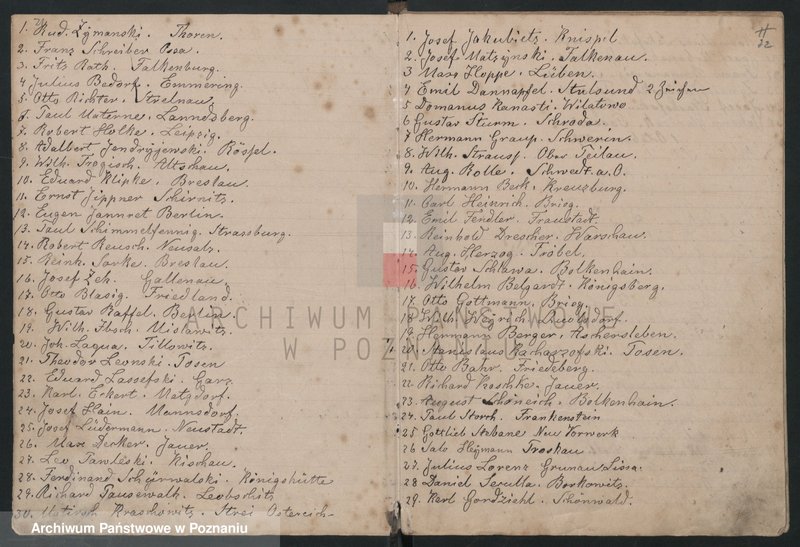 1. Rud. Zymanski. Thoren.
2. Franz Schreiber
3. Fritz Rath. Falkenburg.
4 Julius Bedorf. Emmering.
5. Otto Richter. Strelnau.
6. Paul Materne. Lanndsberg.
7. Robert Holke. Leipzig.
8. Adalbert Jendryjewski. Rössel.
9. Wilh. Trogisch. Altschau.
10. Eduard Klipke. Breslau.
11. Ernst Jippner Schirnitz.
12. Eugen Jannret Berlin.
13. Paul Schimmelfennig. Strassburg.
14. Robert Reusch. Neusalz.
15. Reink. Breslau.
16. Josef Zch. Gallenau.
17. Otto Blasig. Friedland.
18. Gustav Raffel. Berlin.
19. Wilh. Ibsch. Mislawitz.
20. Joh. Laqua. Tillowitz.
21. Theodor Leonski. Posen
22. Eduard Lassefski. Garz.
23. Karl. Eckert. Matzdorf.
24. Josef Hain. Mannsdorf.
25. Josef Lüdermann. Neustadt.
26. Max Decker. Jauer.
27. Leo Pawleski. Kischau.
28. Ferdinand Schürwalski. Königshütte
29. Richard Pausewalk. Leobschitz
30. Kraschowitz. Strei Ostereich
11
22
1. Josef Jakubietz. Knispel
2. Josef Matsynski. Falkenau.
3 Maax Hoppe. Lüben.
4 Emil Dannapfel. Stulsund 2 Zeichen
5 Domanus Kanasti. Wilatowo
6 Gustav Sturm. Schroda.
7 Hermann Graup. Schwerin.
8. Wilh. Strauss. Ober Peilau.
9. Aug. Rolle. Schwedt a. O.
10. Hermann Berk. Kreuzburg.
11. Carl Heinrich. Brieg.
12. Emil Fendler. Fraustadt.
13. Reinhold Drescher. Warschau.
14. Aug. Herzog. Fröbel.
15. Gustav Schlawa. Bolkenhain.
16. Wilhelm Belgardt. Königsberg.
17 Otto Gottmann. Brieg.
18 Wilh. Weyrich.
19 Hermann Berger. Aschersleben.
20. Stanislaus Posen.
21. Otto Bahr. Friedeberg.
22. Richard Koschke. Jauer.
23. August Schöneich. Bolkenhain.
24. Paul Storch. Frankenstein
25 Gottlieb Stebane Neu Vorwerk
26 Salo Heymann Troskau
27. Julius Lorenz Grunau Lissa
28 Daniel Borkowitz.
29. Karl Gordziehl. Schönwald.
ARCHIWUM PAŃSTWOWE
W POZNANIU
Archiwum Państwowe w Poznaniu